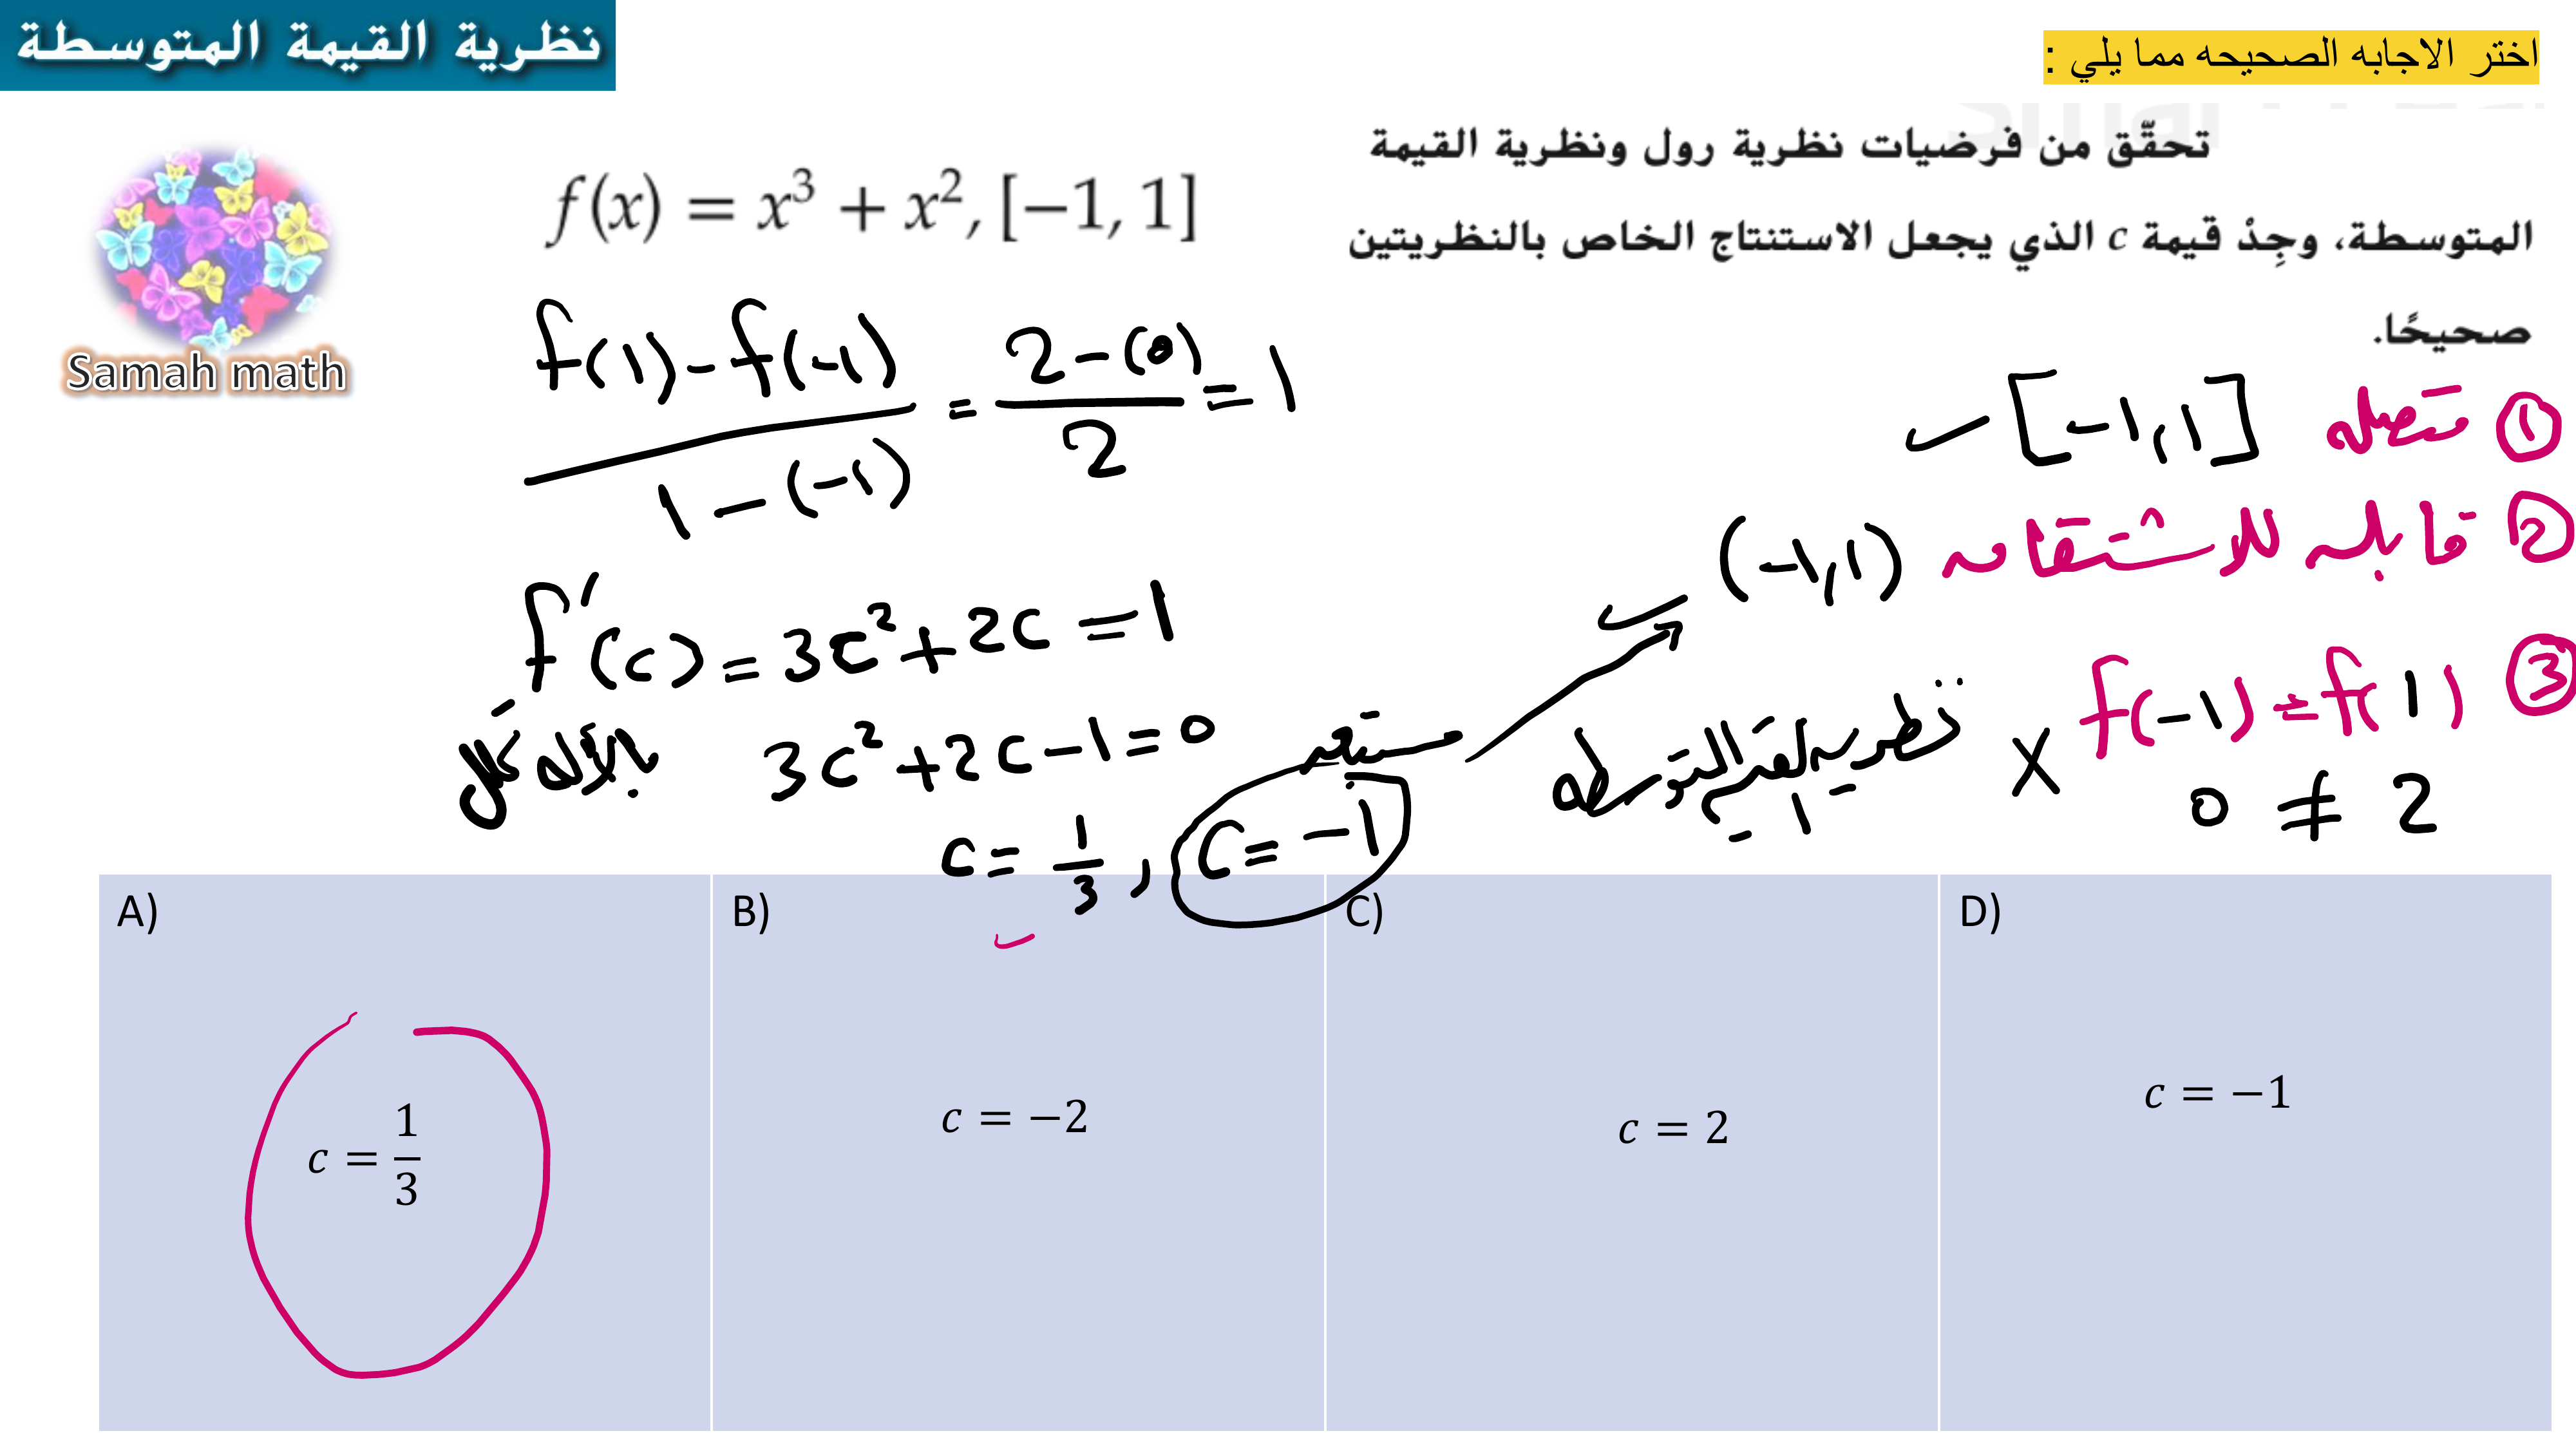 نظرية القيمة المتوسطة
اختر الاجابه الصحيحه مما يلي :
تحقّق من فرضيات نظرية رول ونظرية القيمة
المتوسطة، وجِدْ قيمة c الذي يجعل الاستنتاج الخاص بالنظريتين
صحيحًا.
f(x) = x³ + x², [−1, 1]
Samah math
① متصله [-1,1]
② قابله للاشتقاق (-1,1)
③ f(-1) = f(1) X
0 ≠ 2
نظرية القيمة المتوسطة
(f(1) - f(-1)) / (1 - (-1)) = (2 - (0)) / 2 = 1
f'(c) = 3c² + 2c = 1
3c² + 2c - 1 = 0
c = 1/3 , c = -1
A)
c = 1/3
B)
c = −2
C)
c = 2
D)
c = −1